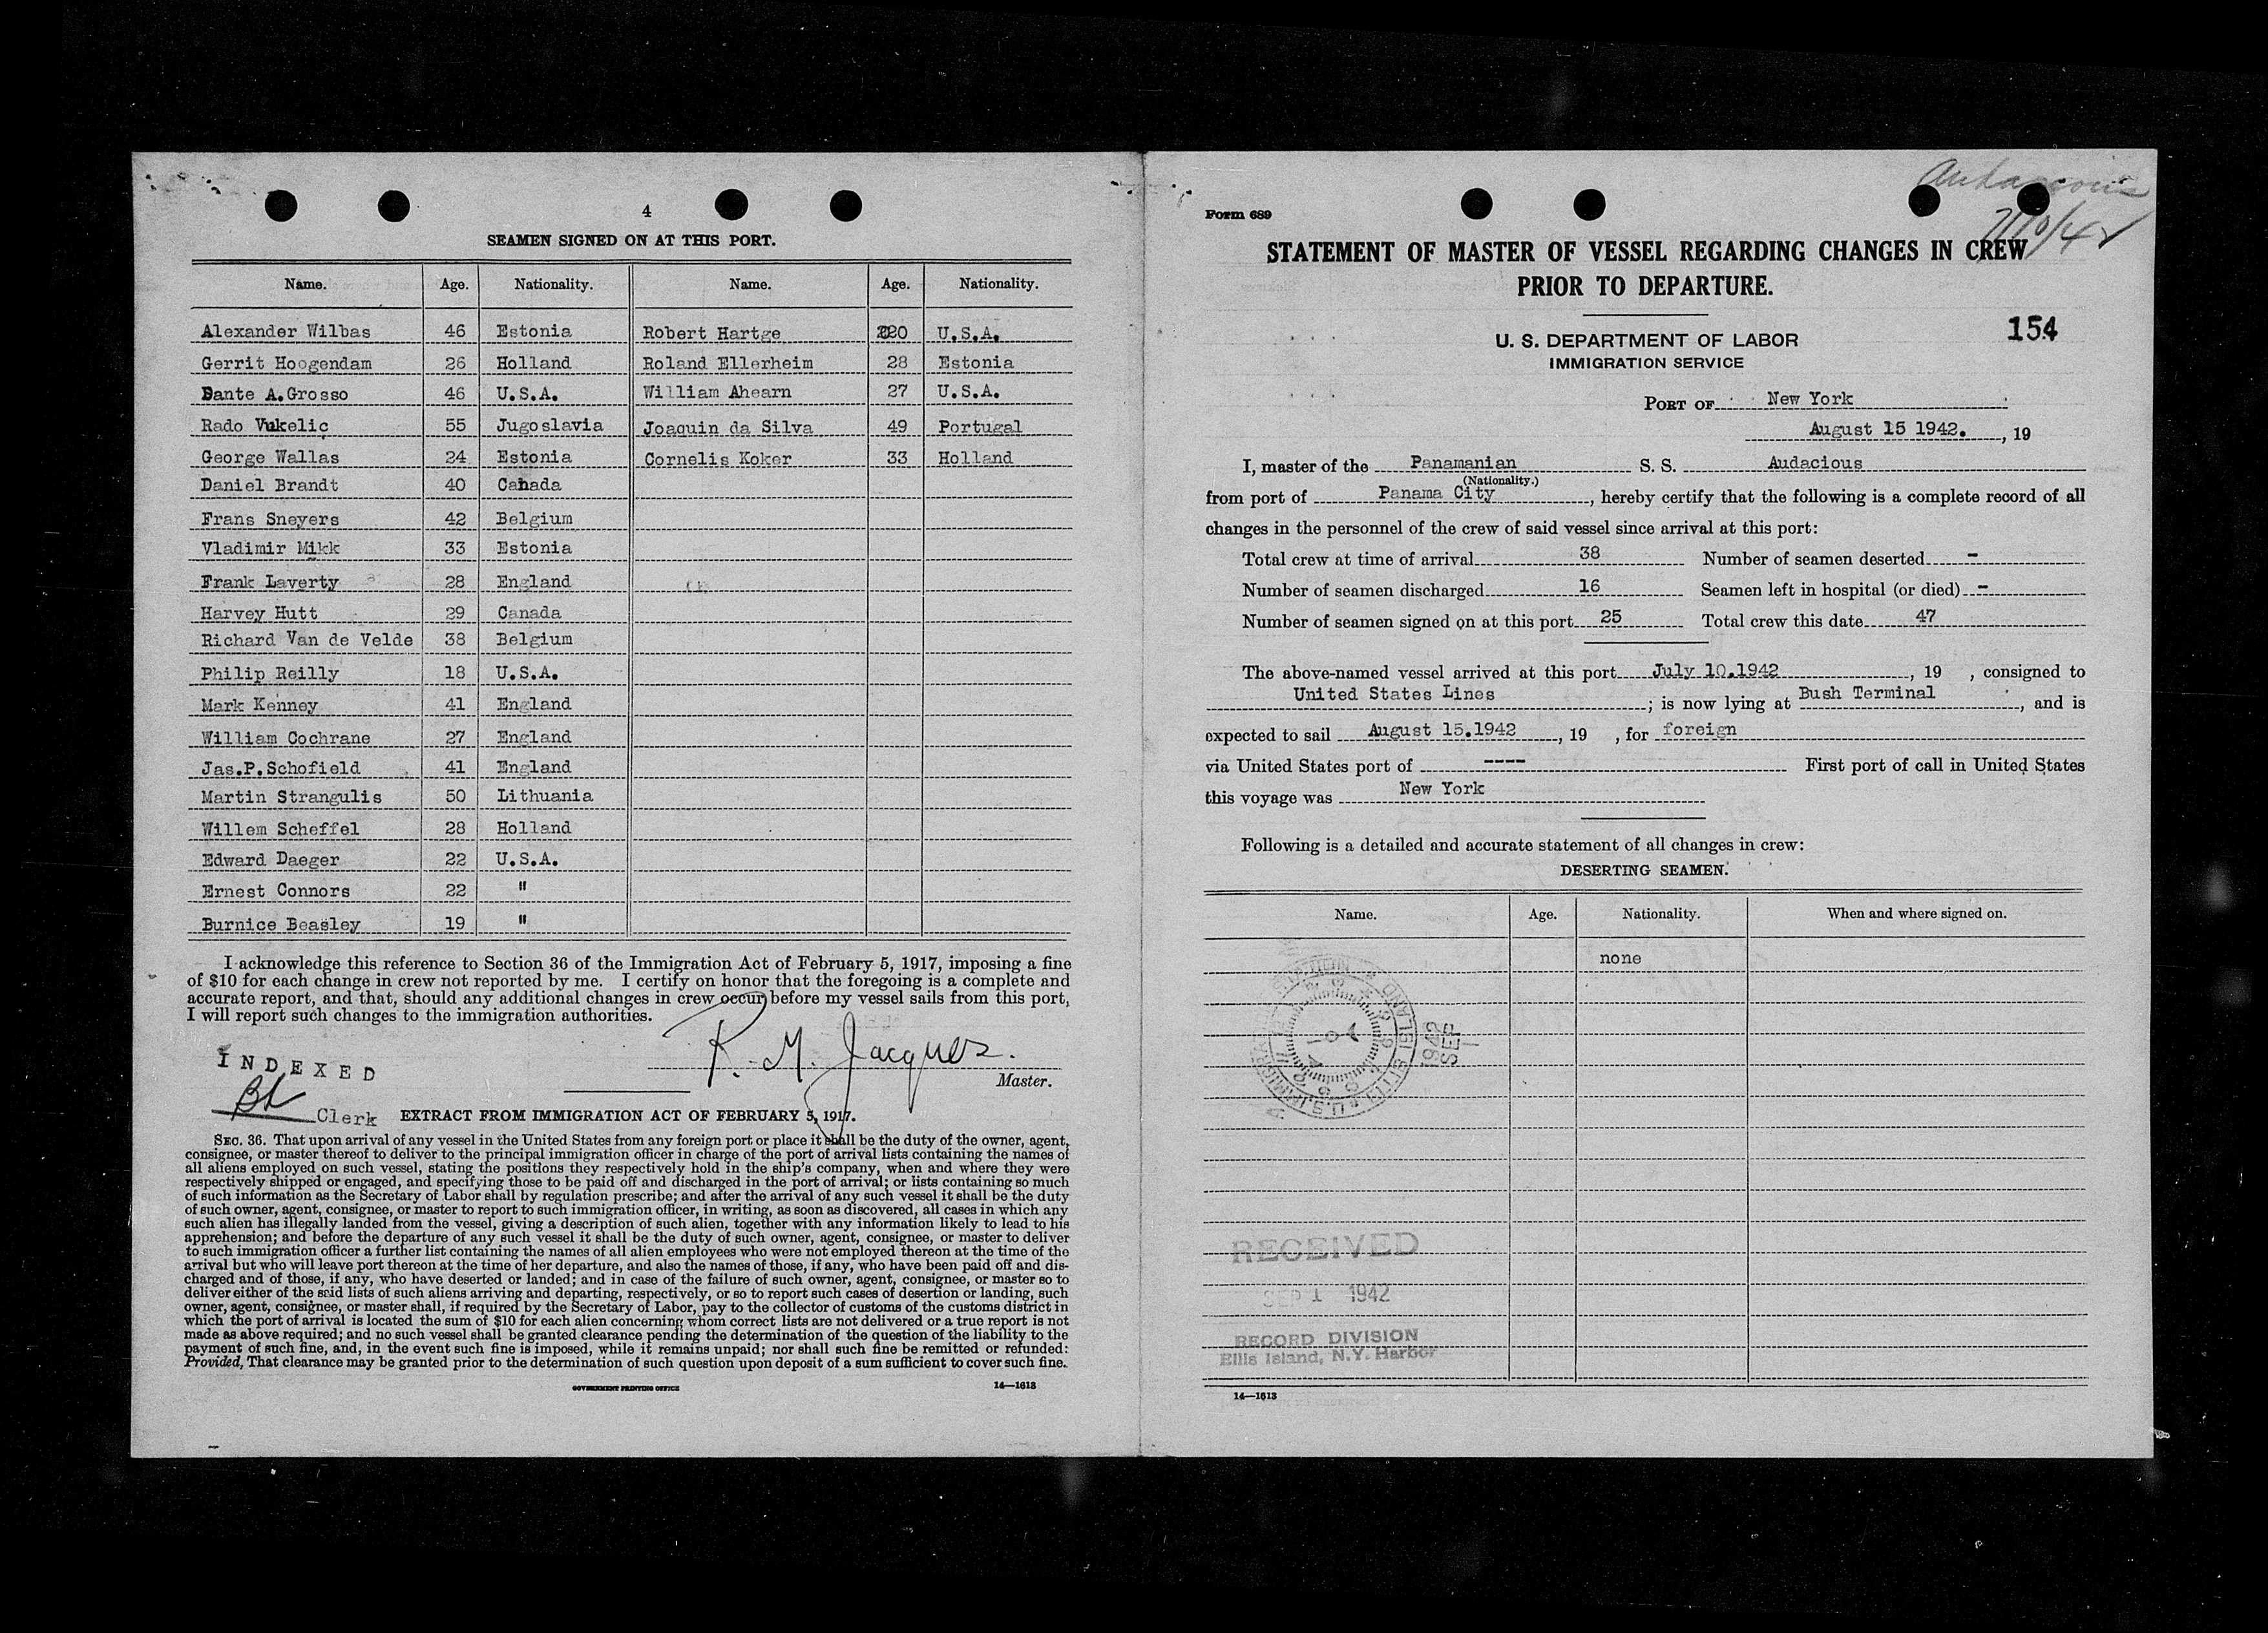 4
SEAMEN SIGNED ON AT THIS PORT.
Name. Age. Nationality. Name. Age. Nationality.
Alexander Wilbas 46 Estonia Robert Hartge 20 U.S.A.
Gerrit Hoogendam 26 Holland Roland Ellerheim 28 Estonia
Dante A.Grosso 46 U.S.A. William Ahearn 27 U.S.A.
Rado Vukelic 55 Jugoslavia Joaquin da Silva 49 Portugal
George Wallas 24 Estonia Cornelis Koker 33 Holland
Daniel Brandt 40 Canada
Frans Sneyers 42 Belgium
Vladimir Mikk 33 Estonia
Frank Laverty 28 England
Harvey Hutt 29 Canada
Richard Van de Velde 38 Belgium
Philip Reilly 18 U.S.A.
Mark Kenney 41 England
William Cochrane 27 England
Jas.P.Schofield 41 England
Martin Strangulis 50 Lithuania
Willem Scheffel 28 Holland
Edward Daeger 22 U.S.A.
Ernest Connors 22 "
Burnice Beasley 19 "
I acknowledge this reference to Section 36 of the Immigration Act of February 5, 1917, imposing a fine
of $10 for each change in crew not reported by me. I certify on honor that the foregoing is a complete and
accurate report, and that, should any additional changes in crew occur before my vessel sails from this port,
I will report such changes to the immigration authorities.
R. M. Jacques.
Master.
INDEXED
Clerk
EXTRACT FROM IMMIGRATION ACT OF FEBRUARY 5, 1917.
SEC. 36. That upon arrival of any vessel in the United States from any foreign port or place it shall be the duty of the owner, agent,
consignee, or master thereof to deliver to the principal immigration officer in charge of the port of arrival lists containing the names of
all aliens employed on such vessel, stating the positions they respectively hold in the ship's company, when and where they were
respectively shipped or engaged, and specifying those to be paid off and discharged in the port of arrival; or lists containing so much
of such information as the Secretary of Labor shall by regulation prescribe; and after the arrival of any such vessel it shall be the duty
of such owner, agent, consignee, or master to report to such immigration officer, in writing, as soon as discovered, all cases in which any
such alien has illegally landed from the vessel, giving a description of such alien, together with any information likely to lead to his
apprehension; and before the departure of any such vessel it shall be the duty of such owner, agent, consignee, or master to deliver
to such immigration officer a further list containing the names of all alien employees who were not employed thereon at the time of the
arrival but who will leave port thereon at the time of her departure, and also the names of those, if any, who have been paid off and dis-
charged and of those, if any, who have deserted or landed; and in case of the failure of such owner, agent, consignee, or master so to
deliver either of the said lists of such aliens arriving and departing, respectively, or so to report such cases of desertion or landing, such
owner, agent, consignee, or master shall, if required by the Secretary of Labor, pay to the collector of customs of the customs district in
which the port of arrival is located the sum of $10 for each alien concerning whom correct lists are not delivered or a true report is not
made as above required; and no such vessel shall be granted clearance pending the determination of the question of the liability to the
payment of such fine, and, in the event such fine is imposed, while it remains unpaid; nor shall such fine be remitted or refunded:
Provided, That clearance may be granted prior to the determination of such question upon deposit of a sum sufficient to cover such fine.
GOVERNMENT PRINTING OFFICE
14—1613
Audacious
7/10/42
Form 689
STATEMENT OF MASTER OF VESSEL REGARDING CHANGES IN CREW
PRIOR TO DEPARTURE.
154
U. S. DEPARTMENT OF LABOR
IMMIGRATION SERVICE
PORT OF New York
August 15 1942. , 19
I, master of the Panamanian S. S. Audacious
(Nationality.)
from port of Panama City , hereby certify that the following is a complete record of all
changes in the personnel of the crew of said vessel since arrival at this port:
Total crew at time of arrival 38 Number of seamen deserted -
Number of seamen discharged 16 Seamen left in hospital (or died) -
Number of seamen signed on at this port 25 Total crew this date 47
The above-named vessel arrived at this port July 10.1942 , 19 , consigned to
United States Lines ; is now lying at Bush Terminal , and is
expected to sail August 15.1942 , 19 , for foreign
via United States port of ---- First port of call in United States
this voyage was New York
Following is a detailed and accurate statement of all changes in crew:
DESERTING SEAMEN.
Name. Age. Nationality. When and where signed on.
none
1942
SEP
1
RECEIVED
SEP 1 1942
RECORD DIVISION
Ellis Island, N.Y. Harbor
14—1613